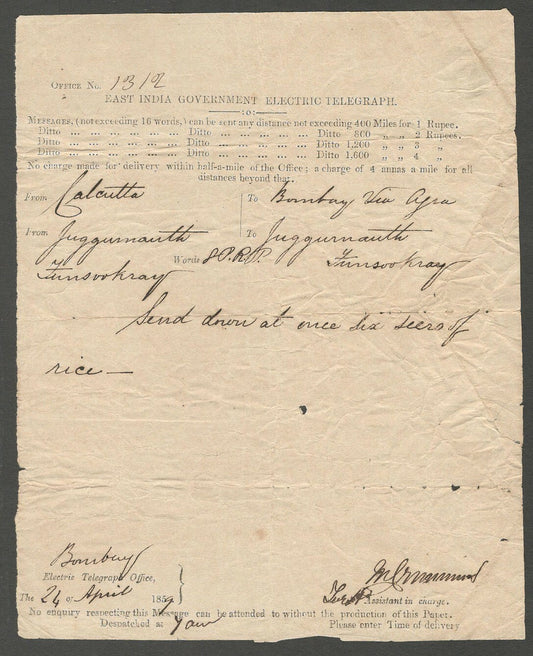 OFFICE No. 1312
EAST INDIA GOVERNMENT ELECTRIC TELEGRAPH.
:o:
MESSAGES, (not exceeding 16 words,) can be sent any distance not exceeding 400 Miles for 1 Rupee.
Ditto ... ... ... ... Ditto ... ... ... ... Ditto 800 „ „ 2 Rupees.
Ditto ... ... ... ... Ditto ... ... ... ... Ditto 1,200 „ „ 3 „
Ditto ... ... ... ... Ditto ... ... ... ... Ditto 1,600 „ „ 4 „
No charge made for delivery within half-a-mile of the Office; a charge of 4 annas a mile for all
distances beyond that.
From Calcutta To Bombay Via Agra
From Juggurnauth To Juggurnauth
Funsookray Words 8 P.R.P. Funsookray
Send down at once six seers of
rice —
Bombay
Electric Telegraph Office,
The 24 of April 185
Assistant in charge.
No enquiry respecting this Message can be attended to without the production of this Paper.
Despatched at Please enter Time of delivery